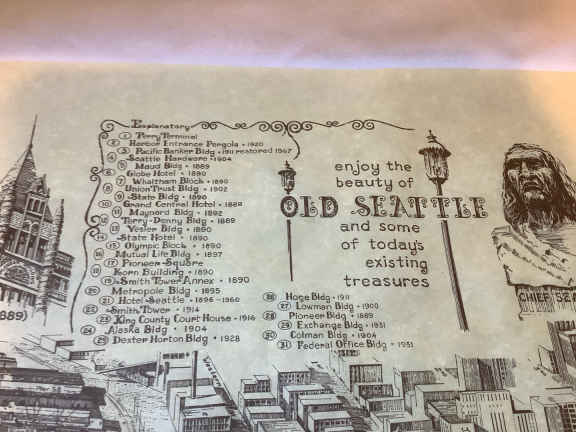 Explanatory
1 Ferry Terminal
2 Harbor Entrance Pergola • 1920
3 Pacific Banker Bldg • 1911 restored 1967
4 Seattle Hardware • 1904
5 Maud Bldg • 1889
6 Globe Hotel • 1890
7 Waltham Block • 1890
8 Union Trust Bldg • 1902
9 State Bldg • 1890
10 Grand Central Hotel • 1889
11 Maynard Bldg • 1892
12 Terry-Denny Bldg • 1889
13 Yesler Bldg • 1890
14 State Hotel • 1890
15 Olympic Block • 1890
16 Mutual Life Bldg • 1897
17 Pioneer Square
18 Korn Building • 1890
19 Smith Tower Annex • 1890
20 Metropole Bldg • 1895
21 Hotel Seattle • 1896-1960
22 Smith Tower • 1914
23 King County Court House • 1916
24 Alaska Bldg • 1904
25 Dexter Horton Bldg • 1928
26 Hoge Bldg • 1911
27 Lowman Bldg • 1900
28 Pioneer Bldg • 1889
29 Exchange Bldg • 1931
30 Colman Bldg • 1904
31 Federal Office Bldg • 1931
enjoy the
beauty of
OLD SEATTLE
and some
of today's
existing
treasures
CHIEF SEA
889)